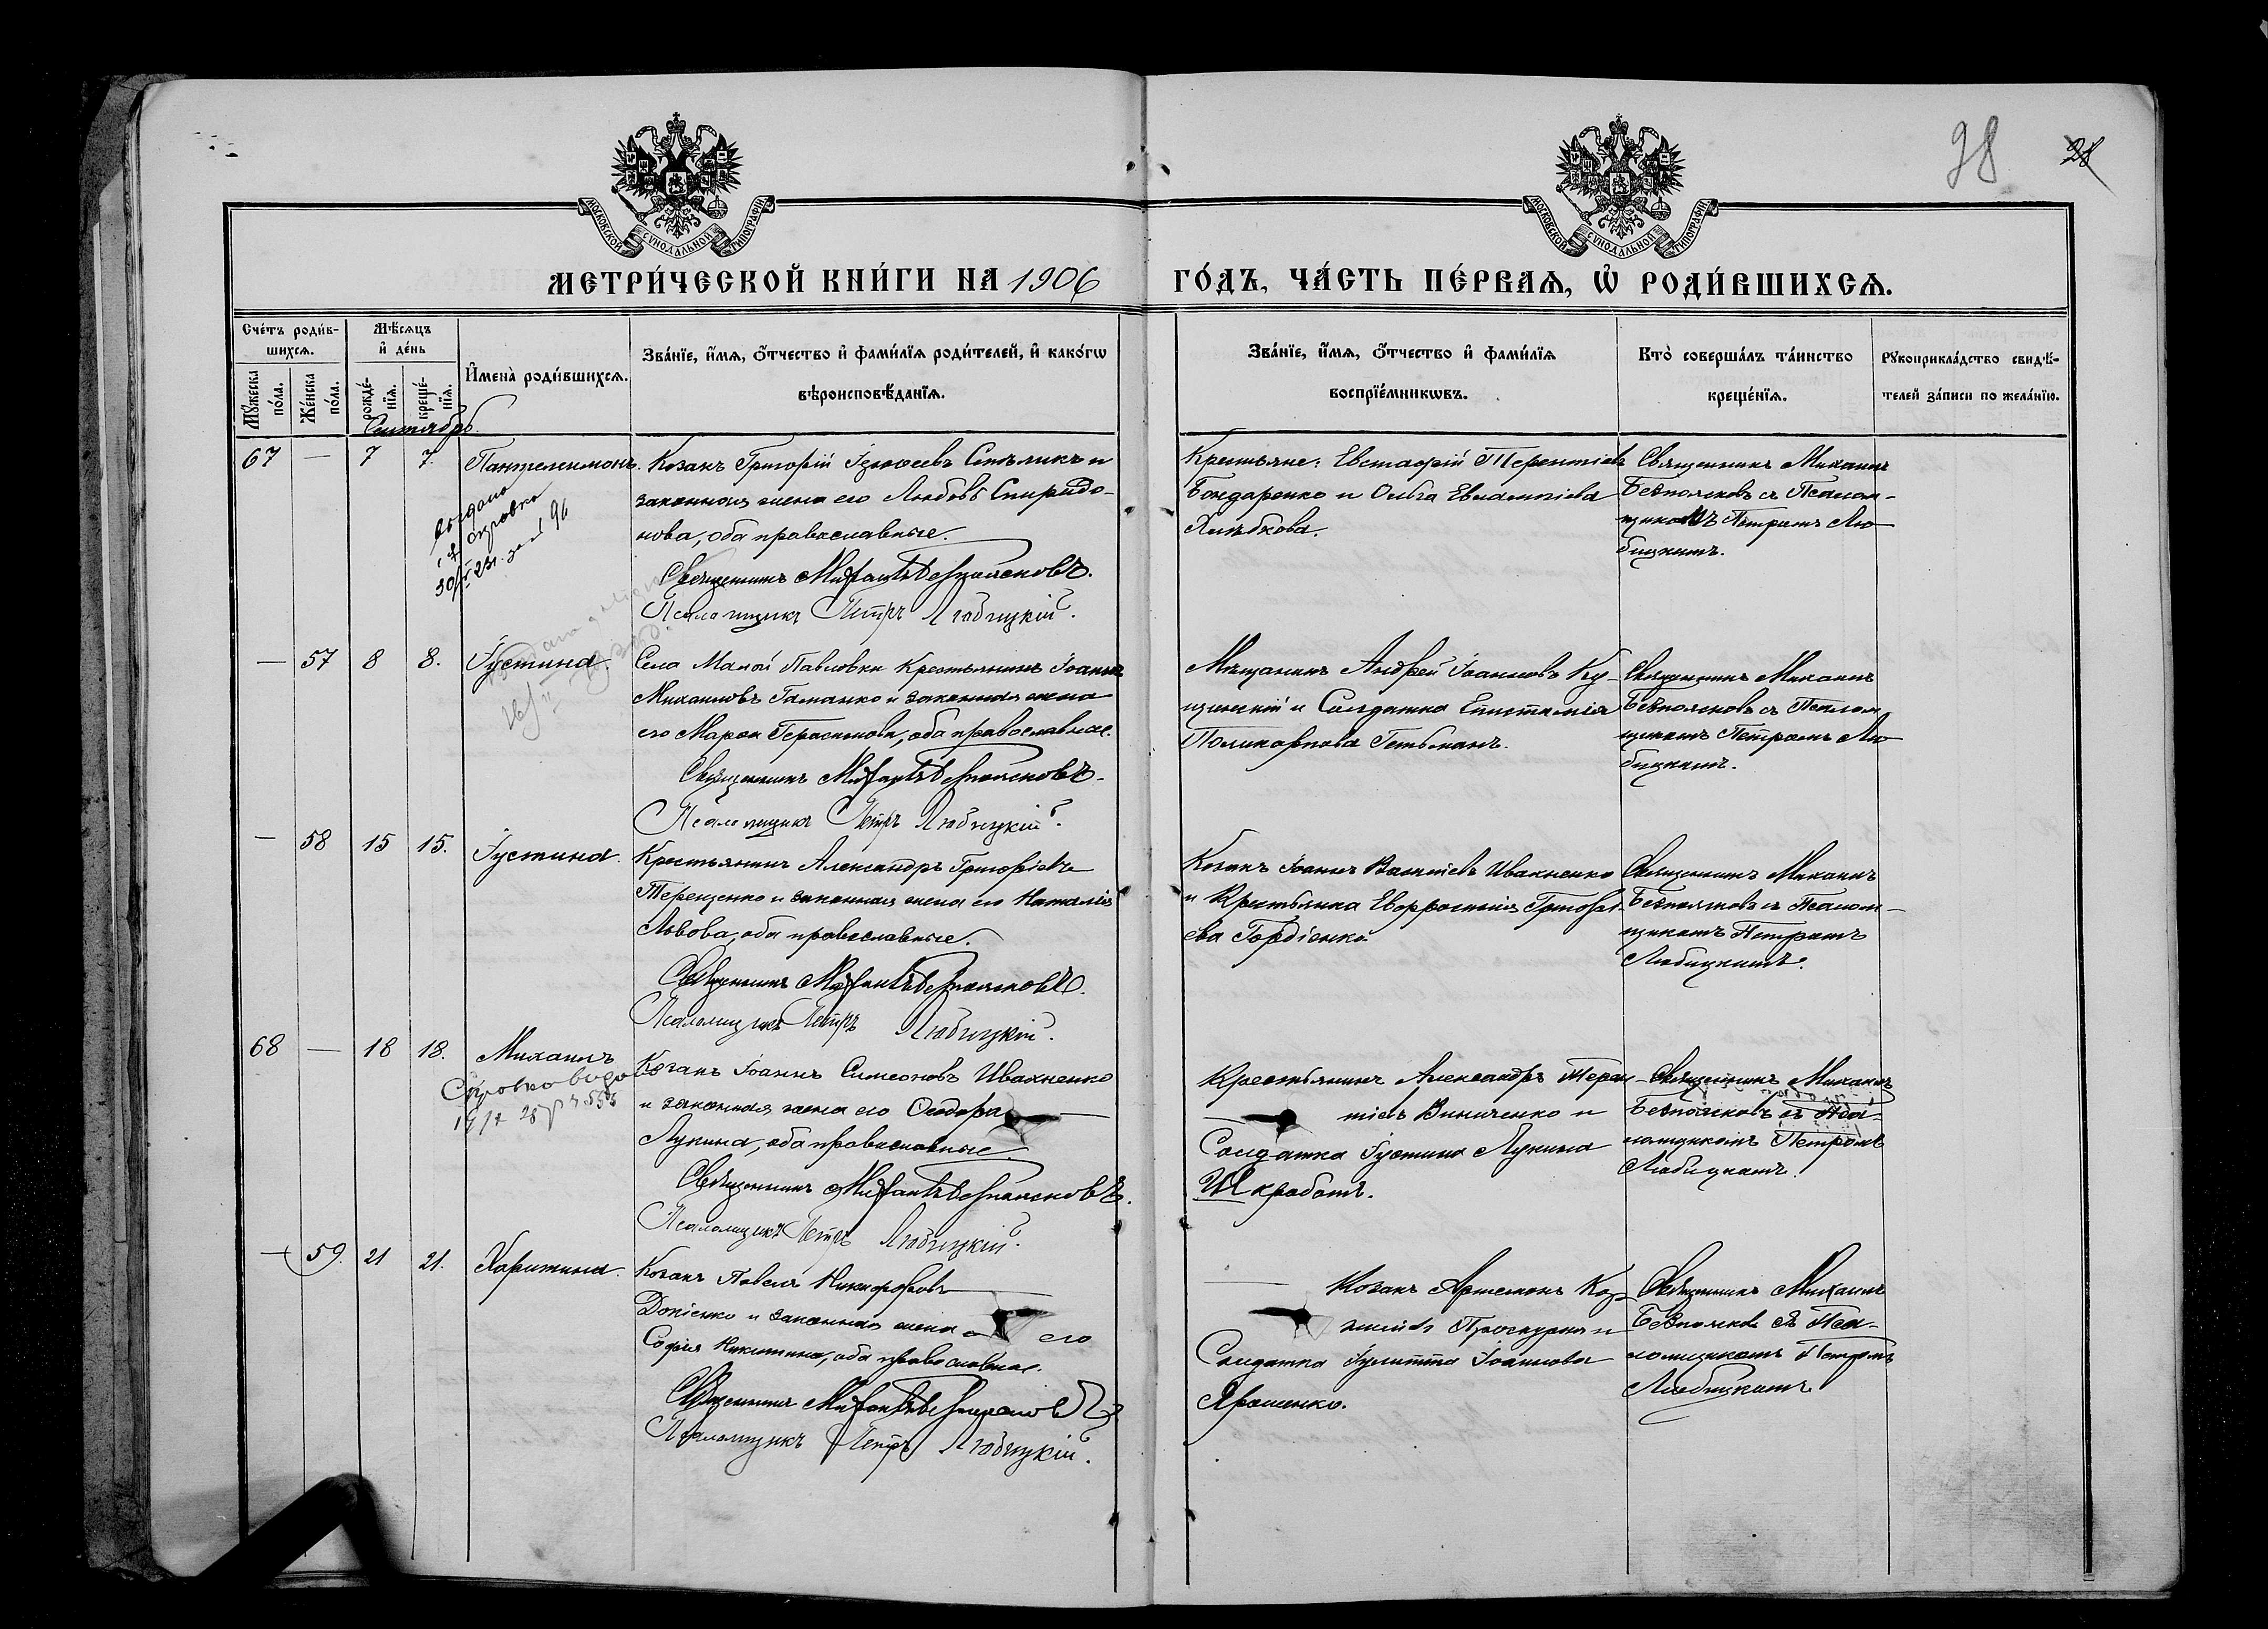 98 28
МОСКОВСКОЙ СѴНОДАЛЬНОЙ ТИПОГРАФІИ
МОСКОВСКОЙ СѴНОДАЛЬНОЙ ТИПОГРАФІИ
МЕТРИ́ЧЕСКОЙ КНИ́ГИ НА 1906 ГО́ДЪ, ЧА́СТЬ ПЕ́РВАѦ, Ѡ҆ РОДИ́ВШИХСѦ.
Сче́тъ роди́в-
шихсѧ.
Мꙋ́жеска по́ла.
Же́нска по́ла.
Мѣ́сѧцъ
и҆ де́нь
рожде́-
нїѧ.
креще́-
нїѧ.
И҆мена̀ роди́вшихсѧ.
Зва́нїе, и҆́мѧ, ѻ҆́тчество и҆ фами́лїѧ роди́телей, и҆ како́гѡ
вѣроисповѣ́данїѧ.
Зва́нїе, и҆́мѧ, ѻ҆́тчество и҆ фами́лїѧ
воспрїе́мникѡвъ.
Кто̀ соверша́лъ та́инство
креще́нїѧ.
Рꙋкоприкла́дство свидѣ́-
телей за́писи по жела́нїю.
Сентябрь.
67 — 7 7. Пантелеимонъ.
Козакъ Григорій
законная жена его Любовь Спиридо-
нова, оба православные.
Священникъ Михаилъ Безпоясковъ.
Псаломщикъ Петръ Любицкій.
Крестьяне: Евстафій Терентіевъ
Бондаренко и Ольга Евлампіева
Хлѣбкова.
Священникъ Михаилъ
Безпоясковъ съ Псалом-
щикомъ Петромъ Лю-
бицкимъ.
выдана
справка
— 57 8 8. Іустина.
Села Малой Павловки Крестьянинъ Іоаннъ
Михаиловъ Гаманко и законная жена
его Марѳа Герасимова, оба православные.
Священникъ Михаилъ Безпоясковъ.
Псаломщикъ Петръ Любицкій.
Мѣщанинъ Андрей Іоанновъ Ку-
и Солдатка Епистимія
Поликарпова Гетьманъ.
Священникъ Михаилъ
Безпоясковъ съ Псалом-
щикомъ Петромъ Лю-
бицкимъ.
— 58 15 15. Іустина.
Крестьянинъ Александръ Григоріевъ
Терещенко и законная жена его Наталія
Львова, оба православные.
Священникъ Михаилъ Безпоясковъ.
Псаломщикъ Петръ Любицкій.
Козакъ Іоаннъ Ивахненко
и Крестьянка Евфросинія Григорі-
ева Гордіенко.
Священникъ Михаилъ
Безпоясковъ съ Псалом-
щикомъ Петромъ
Любицкимъ.
68 — 18 18. Михаилъ
Козакъ Іоаннъ Симеоновъ Ивахненко
и законная жена его Ѳеодора
Лукина, оба православные.
Священникъ Михаилъ Безпоясковъ.
Псаломщикъ Петръ Любицкій.
Крестьянинъ Александръ Терен-
тіевъ Винниченко и
Солдатка Іустина Лукина
Шкработъ.
Священникъ Михаилъ
Безпоясковъ съ Пса-
ломщикомъ Петромъ
Любицкимъ.
— 59. 21 21. Харитина.
Козакъ Павелъ Никифоровъ
Доніенко и законная жена его
Софія Никитина, оба православные.
Священникъ Михаилъ Безпоясковъ
Псаломщикъ Петръ Любицкій.
Козакъ Артемонъ Коз-
миновъ Проскурня и
Солдатка Іулитта Іоаннова
Ярошенко.
Священникъ Михаилъ
Безпоясковъ съ Пса-
ломщикомъ Петромъ
Любицкимъ